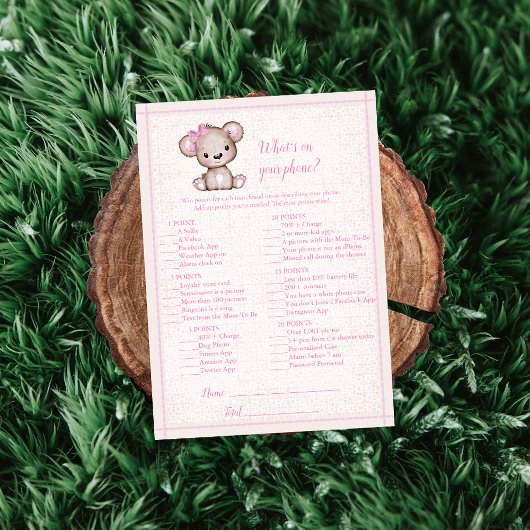 What's on
your phone?
Win points for each item found on or describing your phone.
Add up points you've marked. The most points wins!
1 POINT
A Selfie
A Video
Facebook App
Weather App on
Alarm clock on
3 POINTS
Loyalty store card
Screensaver is a picture
More than 100 pictures
Ringtone is a song
Text from the Mom-To-Be
5 POINTS
40% + Charge
Dog Photo
Fitness App
Amazon App
Twitter App
10 POINTS
70% + Charge
2 or more kid apps
A picture with the Mom-To-Be
Your phone is not an iPhone
Missed call during the shower
15 POINTS
Less than 10% battery life
200 + contacts
You have a white phone case
You don't have a Facebook App
Instagram App
20 POINTS
Over 1,001 photos
5+ pics from the shower today
Personalized Case
Alarm before 7 am
Password Protected
Name
Total